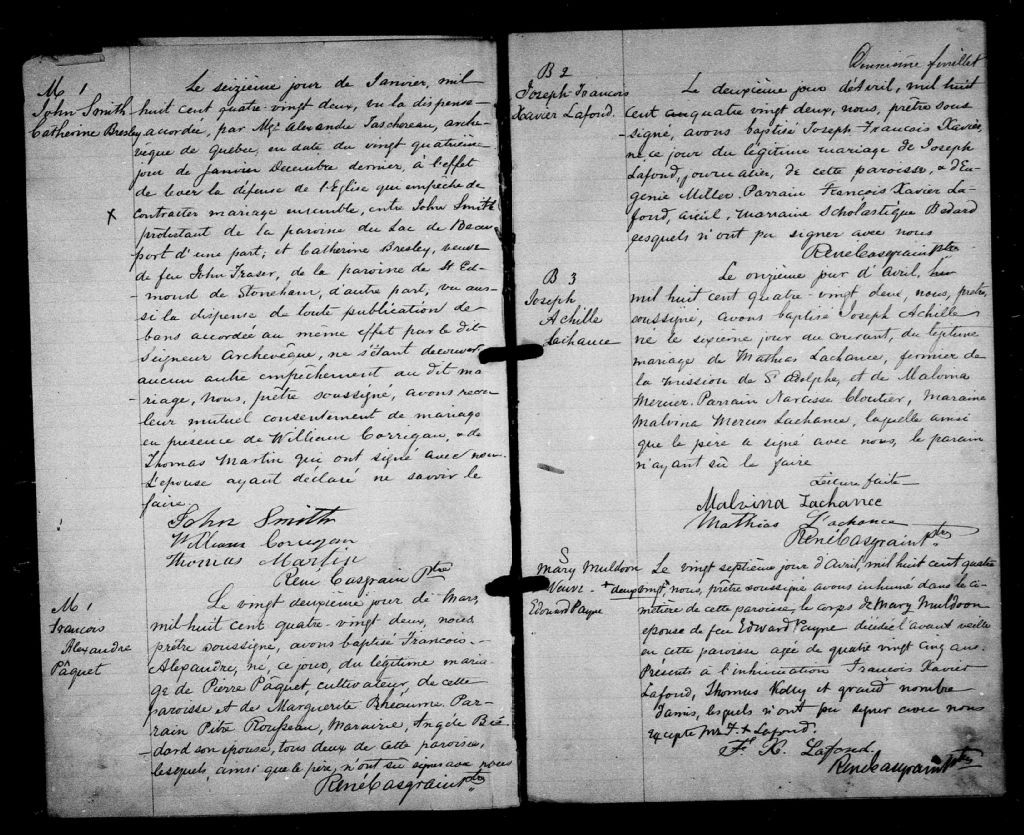 M 1
John Smith
Catherine Bresley
Le seizième jour de Janvier, mil
huit cent quatre vingt deux, vu la dispense
accordée, par Mgr Alexandre Taschereau, arche-
vêque de Quebec, en date du vingt quatrième
jour de Janvier Decembre dernier, à l'effet
de lever la défense de l'Eglise qui empêche de
X
contracter mariage ensemble, entre John Smith
protestant de la paroisse du Lac de Beau
port d'une part; et Catherine Bresley, veuve
de feu John Fraser, de la paroisse de St Ed-
mond de Stoneham, d'autre part, vu aus-
si la dispense de toute publication de
bans accordée au même effet par le dit
Seigneur Archevêque, ne s'étant decouvert
aucun autre empêchement au dit ma-
riage, Nous, prêtre soussigné, avons recu
leur mutuel consentement de mariage
en présence de William Corrigan, & de
Thomas Martin qui ont signé avec nous
L'epouse ayant déclaré ne savoir le
faire
John Smith
William Corrigan
Thomas Martin
René Casgrain Ptre
M 1
Francois
Alexandre
Pâquet
Le vingt deuxième jour de Mars,
mil huit cent quatre-vingt deux, nous
prêtre soussigné, avons baptisé Francois-
Alexandre, né, ce jour, du légitime maria-
ge de Pierre Pâquet, cultivateur, de cette
paroisse et de Marguerite Bheaume. Par-
rain Pitre Rousseau, Maraine, Angèle Bé-
dard son épouse, tous deux de cette paroisse,
lesquels, ainsi que le père, n'ont su signer avec nous
René Casgrain Ptre
Deuxième feuillet
B 2
Joseph-Francois
Xavier Lafond.
Le deuxième jour d'Avril, mil huit
cent quatre vingt deux, nous, prêtre sous
signé, avons baptisé Joseph Francois Xavier,
né ce jour du légitime mariage de Joseph
Lafond, journalier, de cette paroisse, & d'Eu-
genie Miller. Parrain François Xavier La-
fond, aieul, Marraine Scholastique Bedard
lesquels n'ont pu signer avec nous
René Casgrain Ptre
B 3
Joseph
Achille
Lachance
Le onzième jour d'Avril,
mil huit cent quatre-vingt deux, nous, prêtre,
soussigné, avons baptisé Joseph Achille
né le sixième jour du courant, du légitime
mariage de Mathias Lachance, fermier de
la mission de St Adolphe, et de Malvina
Mercier. Parrain Narcisse Cloutier, Maraine
Malvina Mercier Lachance, laquelle ainsi
que le père a signé avec nous, le parain
n'ayant sû le faire
Lecture faite
Malvina Lachance
Mathias Lachance
René Casgrain Ptre
S
Mary Muldon
Veuve
Edouard Payne
Le vingt septième jour d'Avril, mil huit cent quatre
+ deux vingt, nous, prêtre soussigné avons inhumé dans le ci-
mêtiere de cette paroisse, le corps de Mary Muldoon
epouse de feu Edward Payne décédée l'avant veille
en cette paroisse agée de quatre vingt cinq ans.
Présents à l'inhumation Francois Xavier
Lafond, Thomas Kelly et grand nombre
d'amis, lesquels n'ont pu signer avec nous
Excepté Mr F. X Lafond.
F. X. Lafond.
René Casgrain Ptre